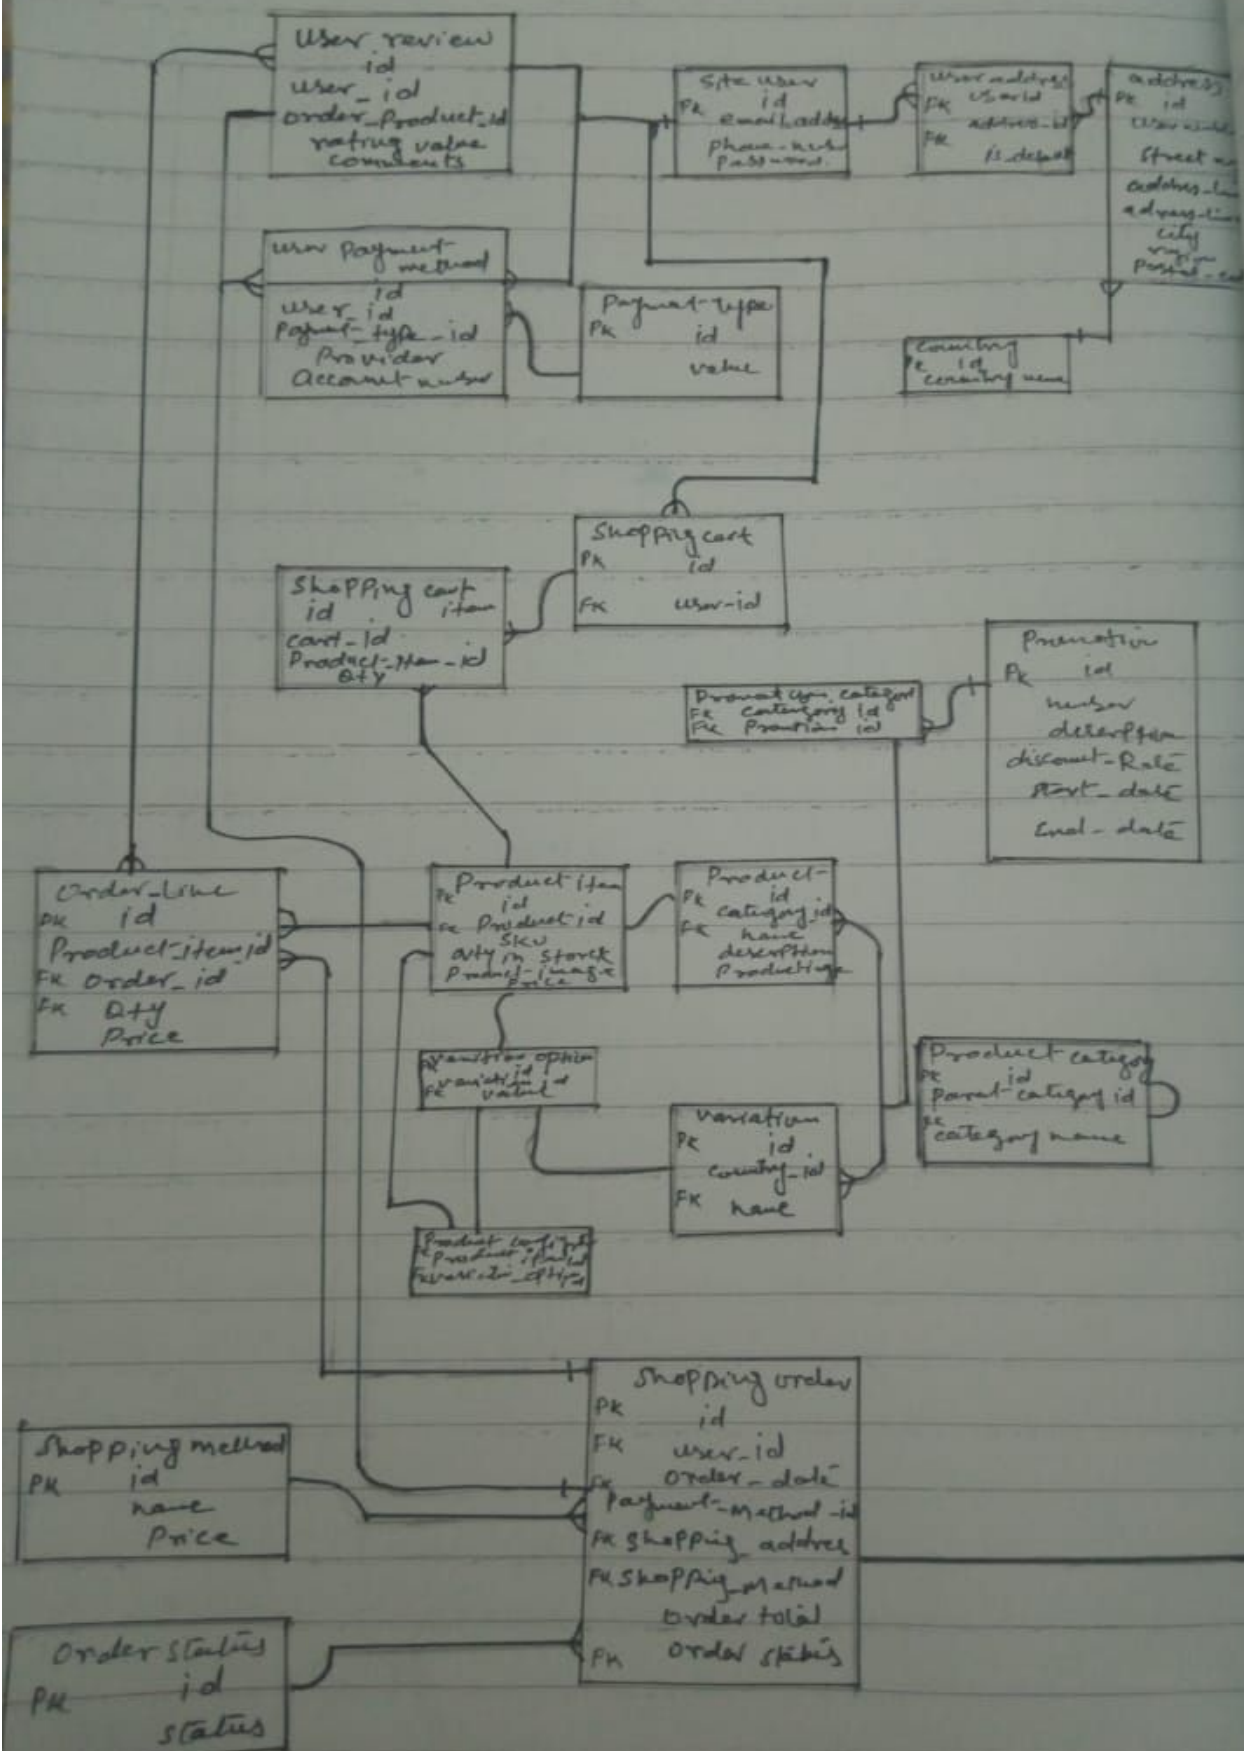 User review
id
user_id
order_Product_id
rating value
comments
Site user
PK id
email addre
phone-num
password
User address
FK userid
address-id
FK
is_default
address
PK id
Street
address-lin
adress-lin
city
region
Postal_co
User Payment
method
id
user_id
Paymet_type_id
Provider
Account number
Paymet-type
PK id
value
country
id
country name
Shopping cart
PK id
FK user-id
Shopping cart
id item
cart_id
Product-Item_id
Qty
category
FK category id
FK Promtion id
Promotion
PK id
number
description
discount-Rate
start_date
End_date
Order_Line
PK id
Product-item_id
FK order_id
FK Qty
Price
Product item
PK id
FK Product id
SKU
Qty in Storck
Product-image
Price
Product-
PK id
category_id
FK name
description
Variation option
FK value
Product category
PK id
Parent-category id
category name
Variation
PK id
country_id
FK name
Product
Product item id
Shopping order
PK id
FK user_id
FK order_date
Payment-Method-id
FK Shopping_addres
FK Shoppig_Method
order total
FK order status
Shopping method
PK id
name
Price
Order status
PK id
status